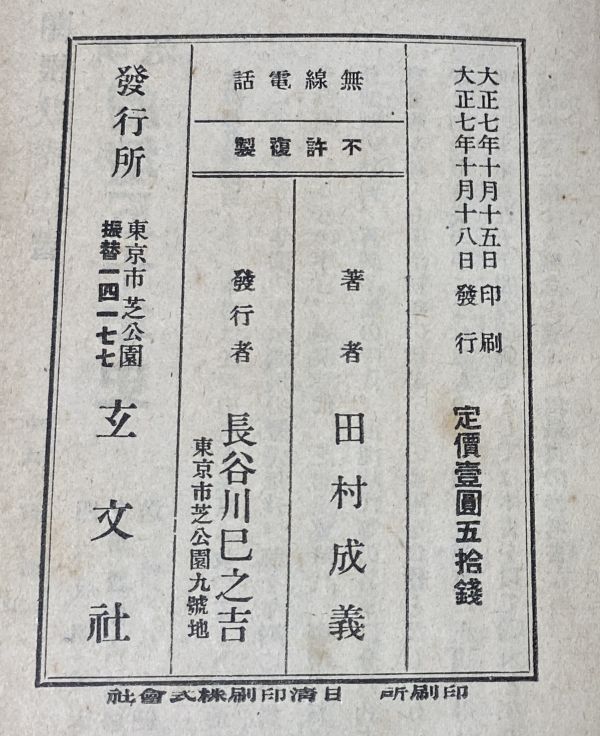 大正七年十月十五日印刷
大正七年十月十八日發行
定價壹圓五拾錢
無線電話
不許復製
著者 田村成義
發行者 長谷川巳之吉
東京市芝公園九號地
發行所
東京市芝公園
振替一四一七七
玄文社
印刷所 日淸印刷株式會社